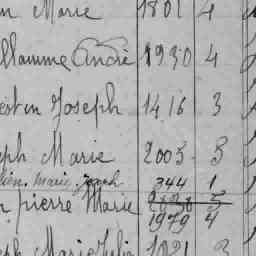 n Marie 1801 4
llaume André 1930 4
estin Joseph 1416 3
eph Marie 2005 3
lien Marie Joseph 344 1
n pierre Marie 2828 5
1979 4
eph Marie Julien 1021 3